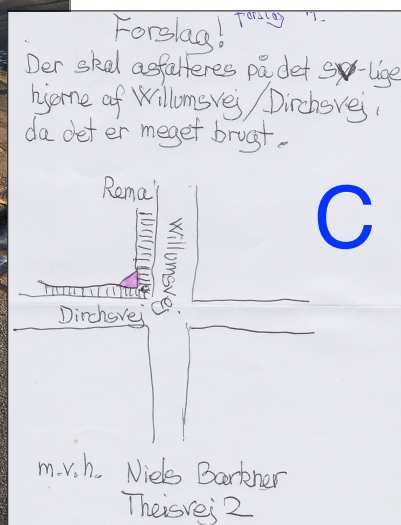 Forslag!
Der skal asfalteres på det sv-lige
hjørne af Willumsvej/Dirchsvej,
da det er meget brugt.
Rema
Willumsvej
C
Dirchsvej
m.v.h. Niels Bærkner
Theisvej 2